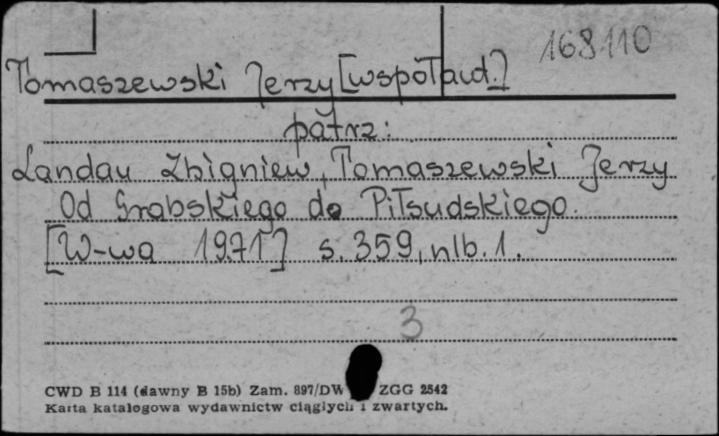 168110
Tomaszewski Jerzy [współaut.]
patrz:
Landau Zbigniew, Tomaszewski Jerzy
Od Grabskiego do Piłsudskiego.
[W-wa 1971] s. 359, nlb. 1.
3
CWD B 114 (dawny B 15b) Zam. 897/DW ZGG 2542
Karta katalogowa wydawnictw ciągłych i zwartych.